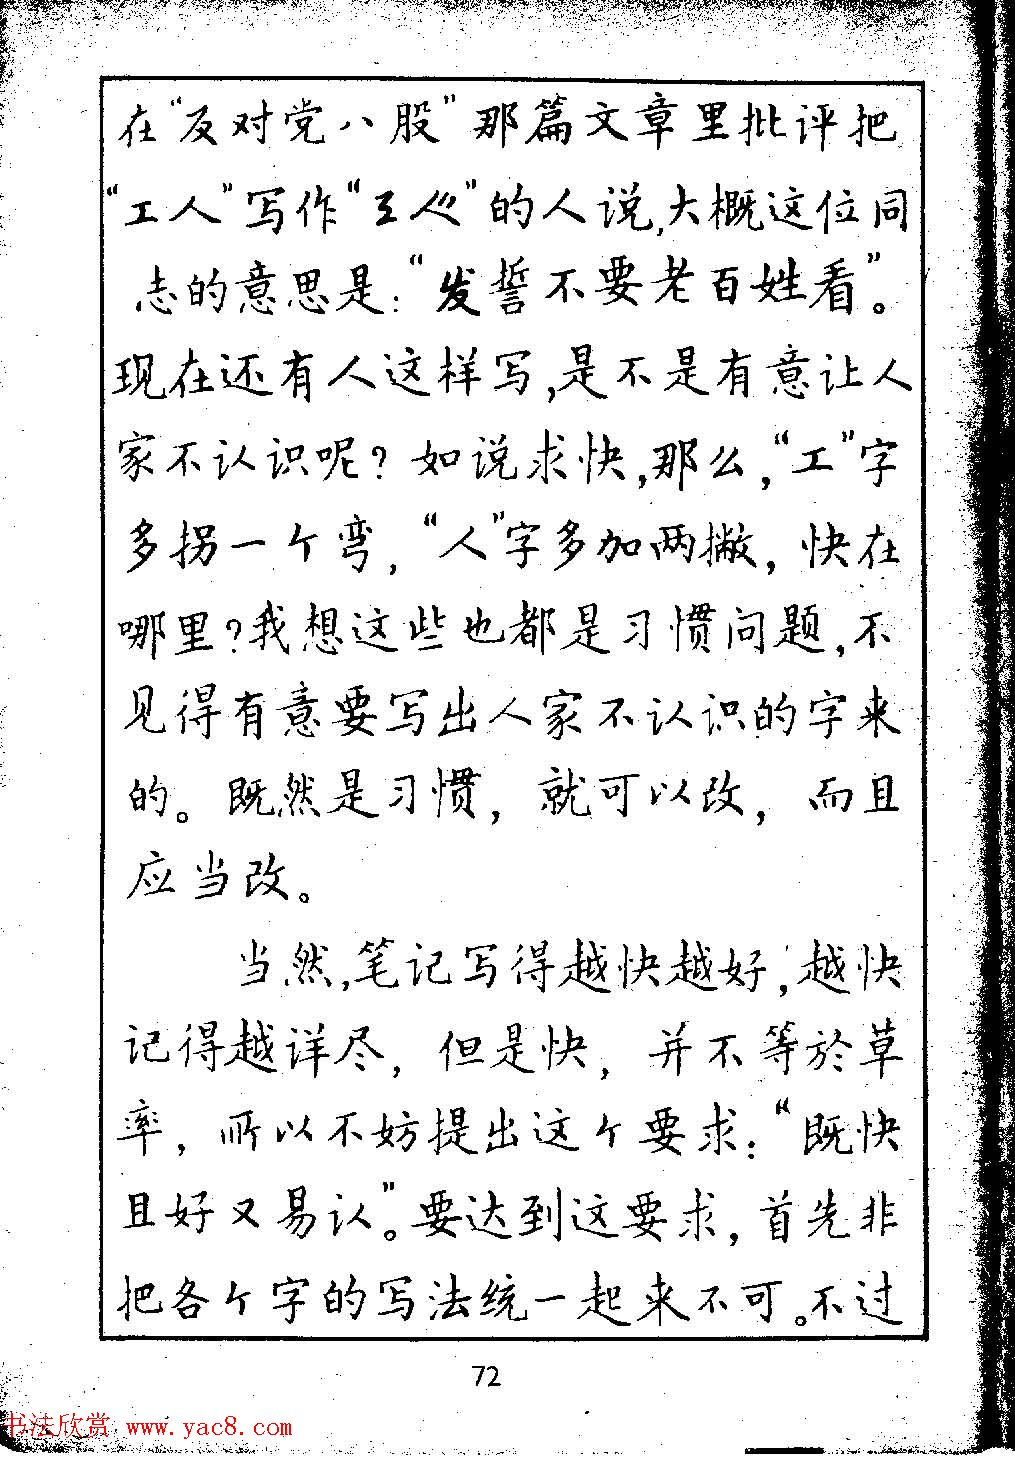 在“反对党八股”那篇文章里批评把
“工人”写作“𢀚𠆧”的人说,大概这位同
志的意思是:“发誓不要老百姓看”。
现在还有人这样写,是不是有意让人
家不认识呢?如说求快,那么,“工”字
多拐一个弯,“人”字多加两撇,快在
哪里?我想这些也都是习惯问题,不
见得有意要写出人家不认识的字来
的。既然是习惯,就可以改,而且
应当改。
当然,笔记写得越快越好,越快
记得越详尽,但是快,并不等於草
率,所以不妨提出这个要求:“既快
且好又易认”。要达到这要求,首先非
把各个字的写法统一起来不可。不过
72
书法欣赏 www.yac8.com